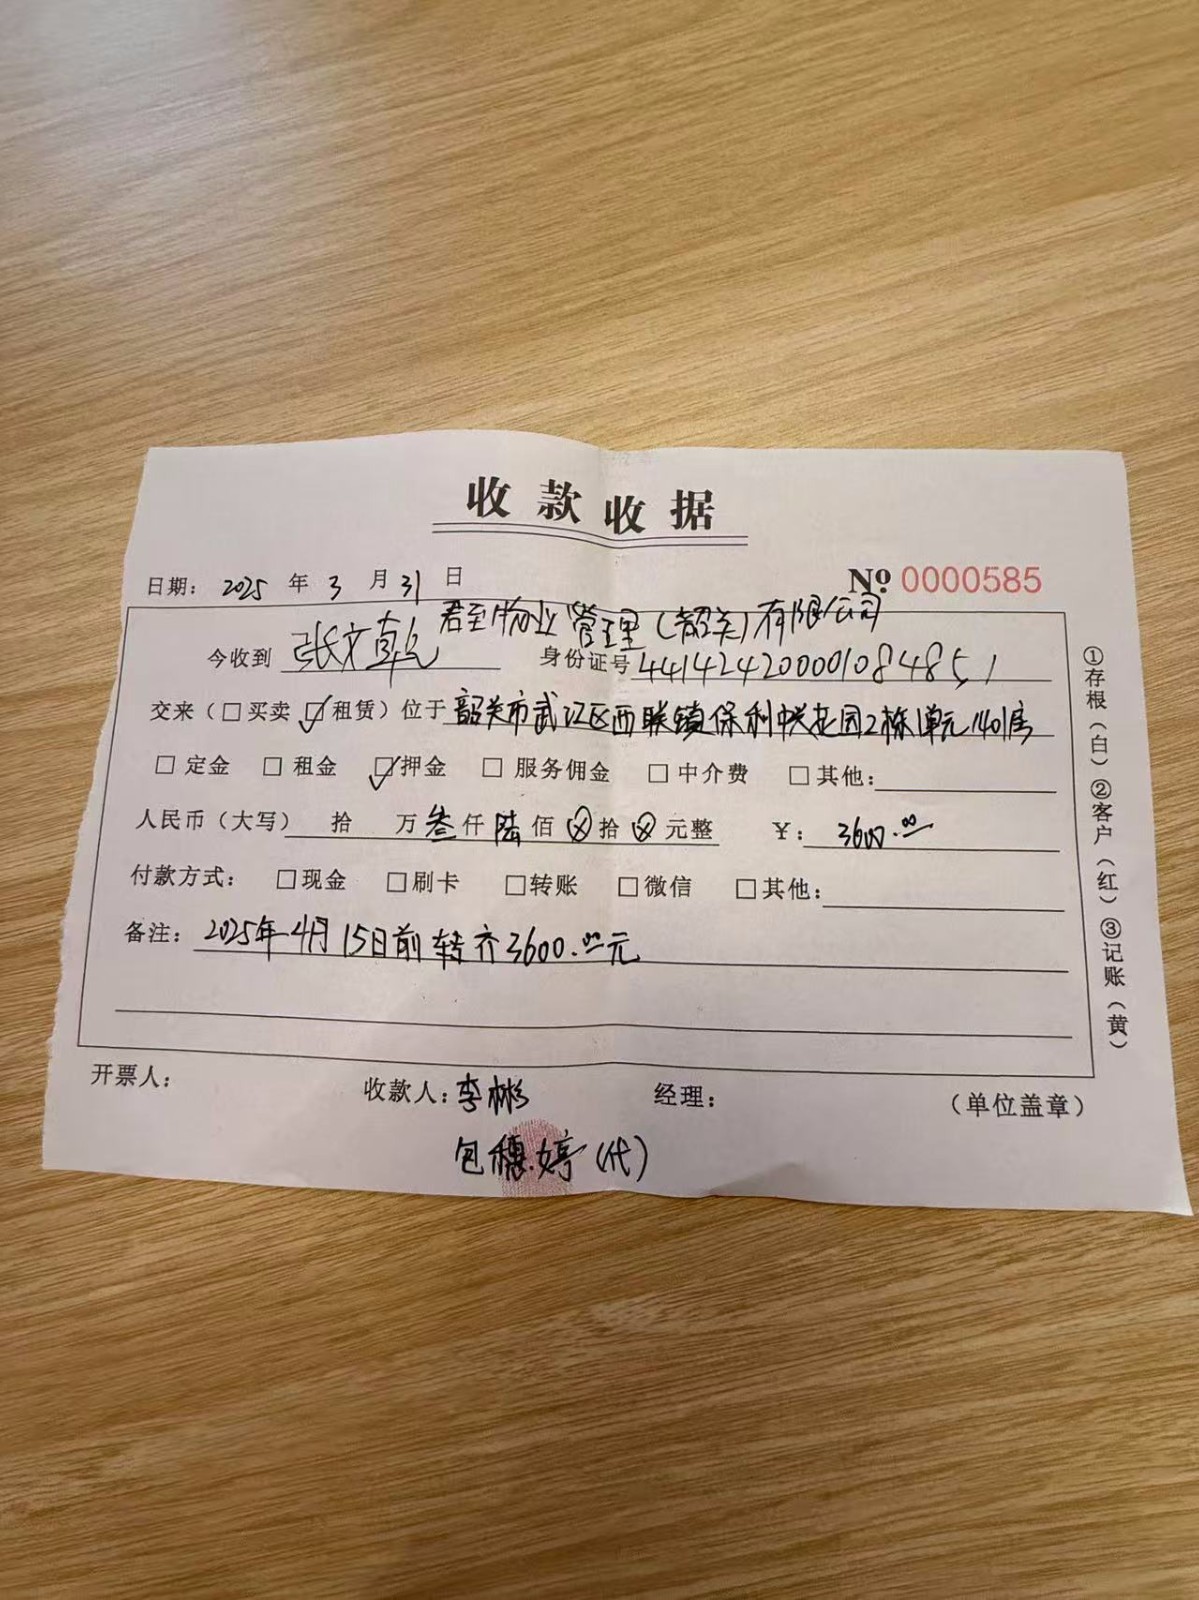 收款收据
日期： 2025 年 3 月 31 日 № 0000585
君至物业管理（韶关）有限公司
今收到 张文乾 身份证号 441424200001084851
交来（□买卖 ☑租赁）位于 韶关市武江区西联镇保利中央花园2栋1单元1401房
□ 定金 □ 租金 ☑ 押金 □ 服务佣金 □ 中介费 □ 其他：
人民币（大写） 拾 万 叁 仟 陆 佰 ⊗ 拾 ⊗ 元整 ￥： 3600.00
付款方式： □现金 □刷卡 □转账 □微信 □其他：
备注： 2025年4月15日前转齐3600.00元
开票人： 收款人：李彬 经理： （单位盖章）
包穗婷（代）
①存根（白）②客户（红）③记账（黄）